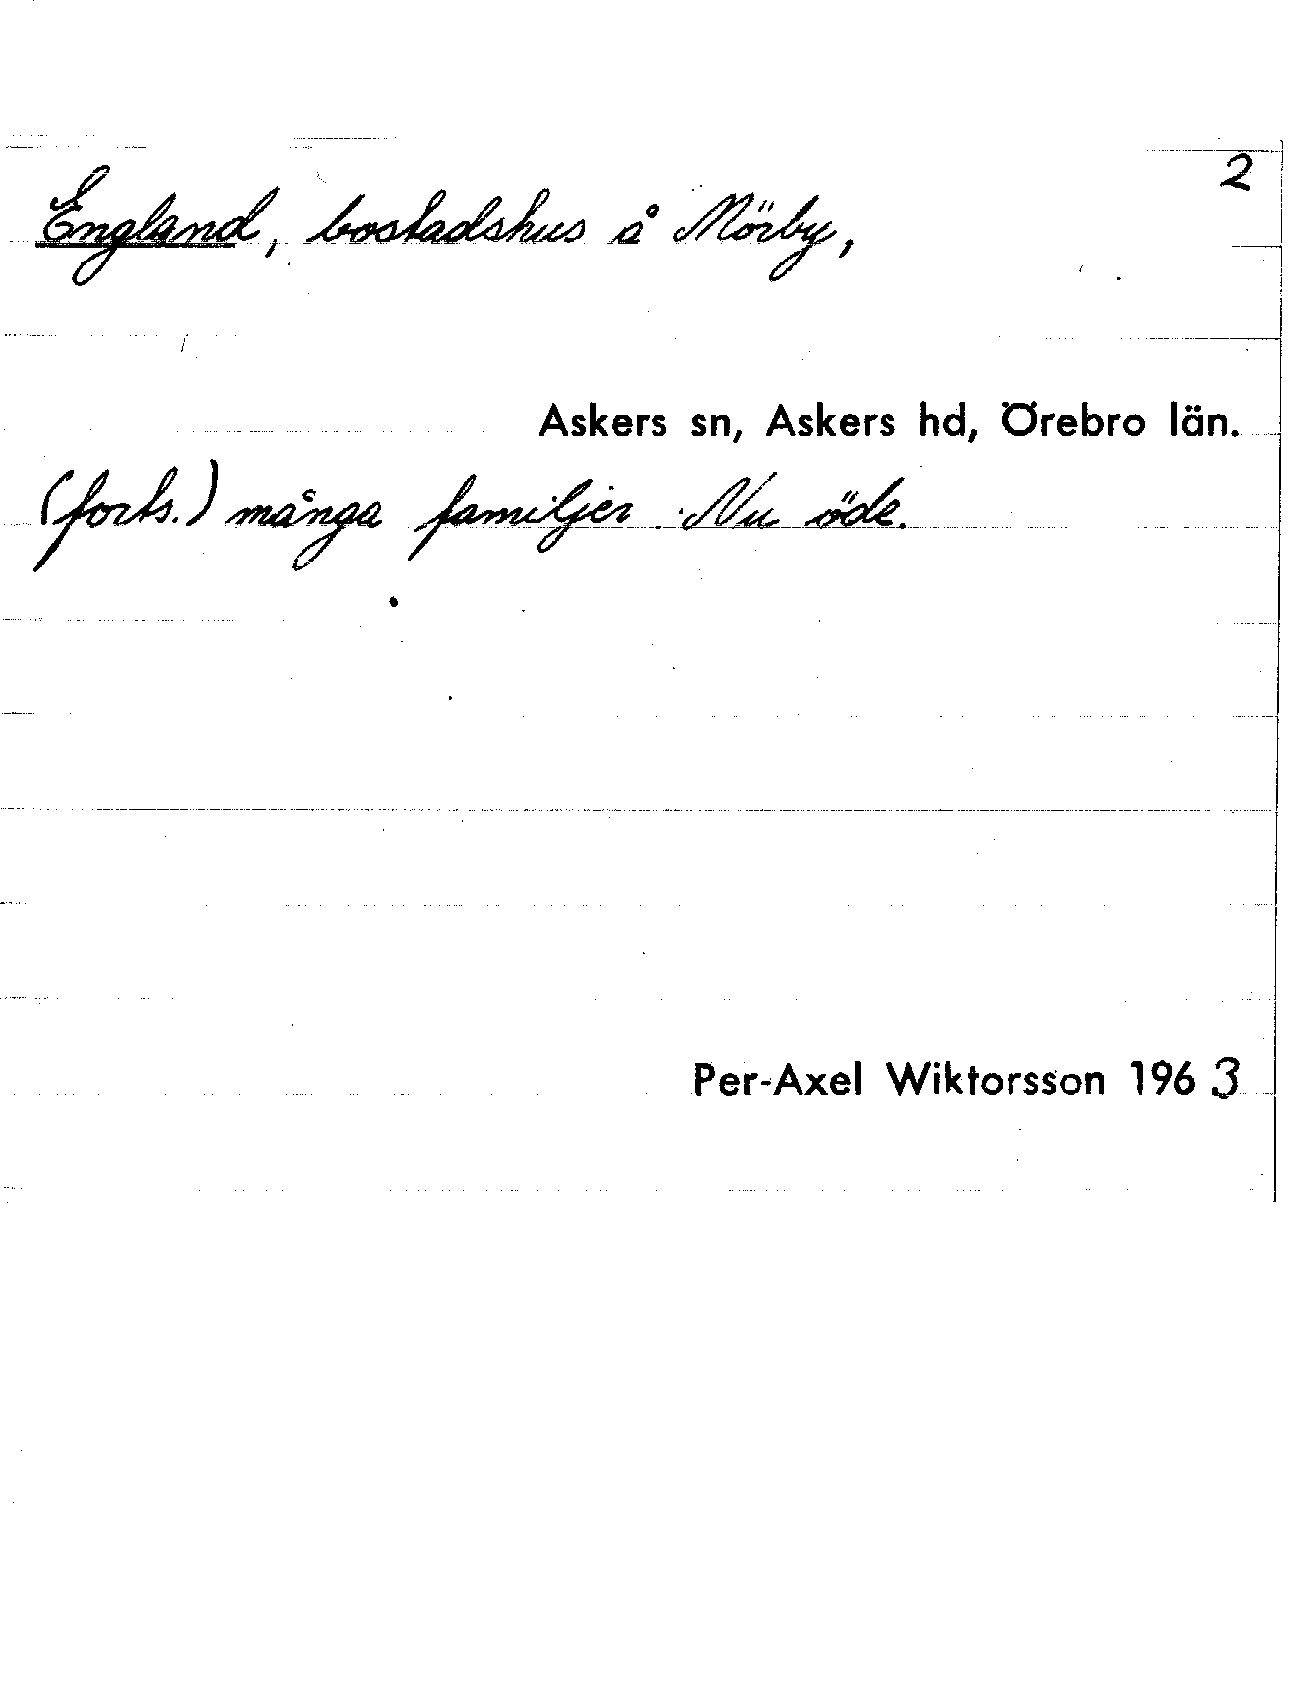 2
England, bostadshus å Mörby,
Askers sn, Askers hd, Örebro län.
(forts.) många familjer. Nu öde.
Per-Axel Wiktorsson 1963